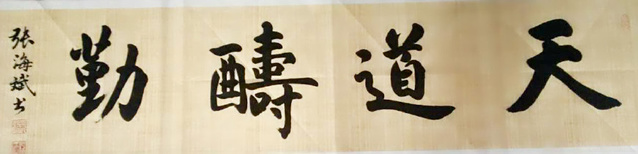 天道醻勤
張海斌书